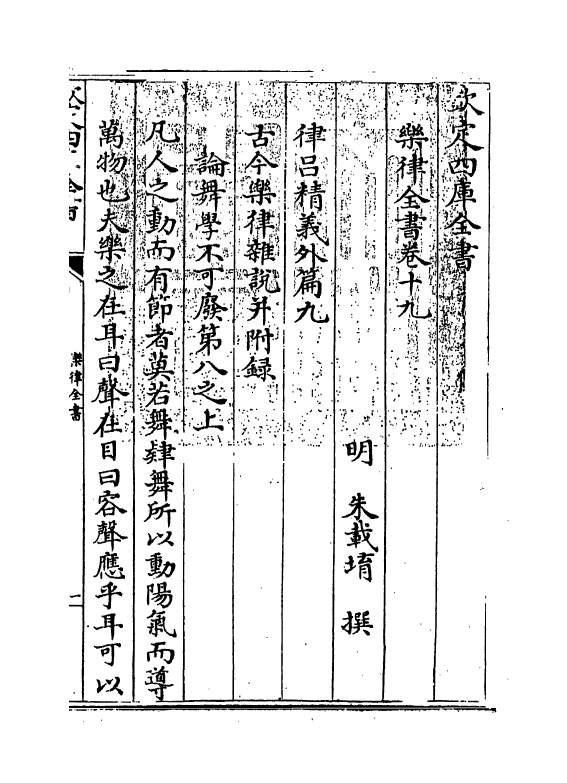 欽定四庫全書
樂律全書卷十九
明 朱載堉 撰
律呂精義外篇九
古今樂律雜說并附録
論舞學不可廢第八之上
凡人之動而有節者莫若舞肄舞所以動陽氣而導
萬物也夫樂之在耳曰聲在目曰容聲應乎耳可以
樂律全書
一